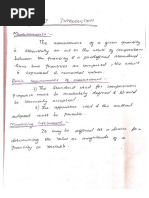 INTRODUCTION
Measurements :-
The measurement of a given quantity
is essentially an act or the result of comparison
between the quantity & a predefined standard.
Since two quantities are compared, the result
is expressed in numerical values.
Basic requirements of measurement :-
i) The standard used for comparison
purpose must be accurately defined & should
be commonly accepted.
ii) The apparatus used & the method
adopted must be provable.
Measuring Instrument :-
It may be defined as a device for
determining the value or magnitude of a
quantity or variable.